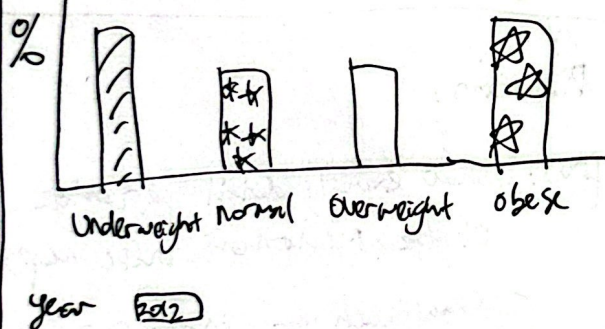 %
Underweight normal overweight obese
year 2012